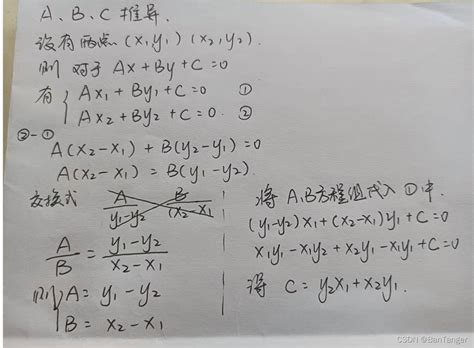 A、B、C 推导.
设有两点 (x₁y₁) (x₂,y₂).
则 对于 Ax+By+C=0
有 { Ax₁+By₁+C=0 ①
Ax₂+By₂+C=0. ②
②-① A(x₂-x₁)+B(y₂-y₁)=0
A(x₂-x₁)=B(y₁-y₂).
交换式 A/(y₁-y₂) B/(x₂-x₁)
A/B = (y₁-y₂)/(x₂-x₁)
则 { A=y₁-y₂
B=x₂-x₁
将A,B方程组代入①中.
(y₁-y₂)x₁+(x₂-x₁)y₁+C=0
x₁y₁-x₁y₂+x₂y₁-x₁y₁+C=0
得 C=y₂x₁+x₂y₁.
CSDN @BanTanger